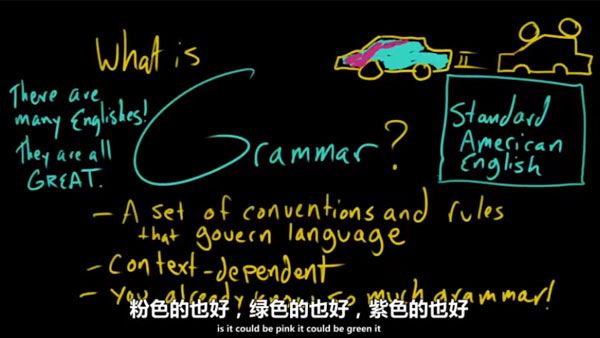 What is
Grammar?
There are
many Englishes!
They are all
GREAT.
Standard
American
English
- A set of conventions and rules
that govern language
- Context-dependent
- You already know so much grammar!
粉色的也好，绿色的也好，紫色的也好
is it could be pink it could be green it